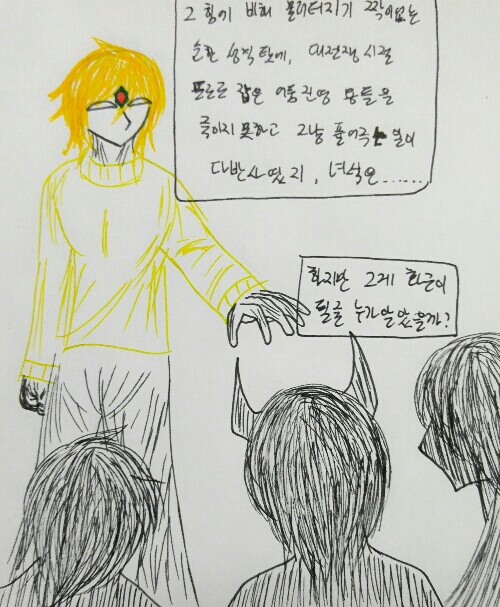 그 힘에 비해 물러터지기 짝이없는
순한 성격 탓에, 대전쟁 시절
포로로 잡은 어둠진영 용들을
죽이지 못하고 그냥 풀어주는 일이
다반사였지, 녀석은......
하지만 그게 화근이
될줄 누가알았을까?